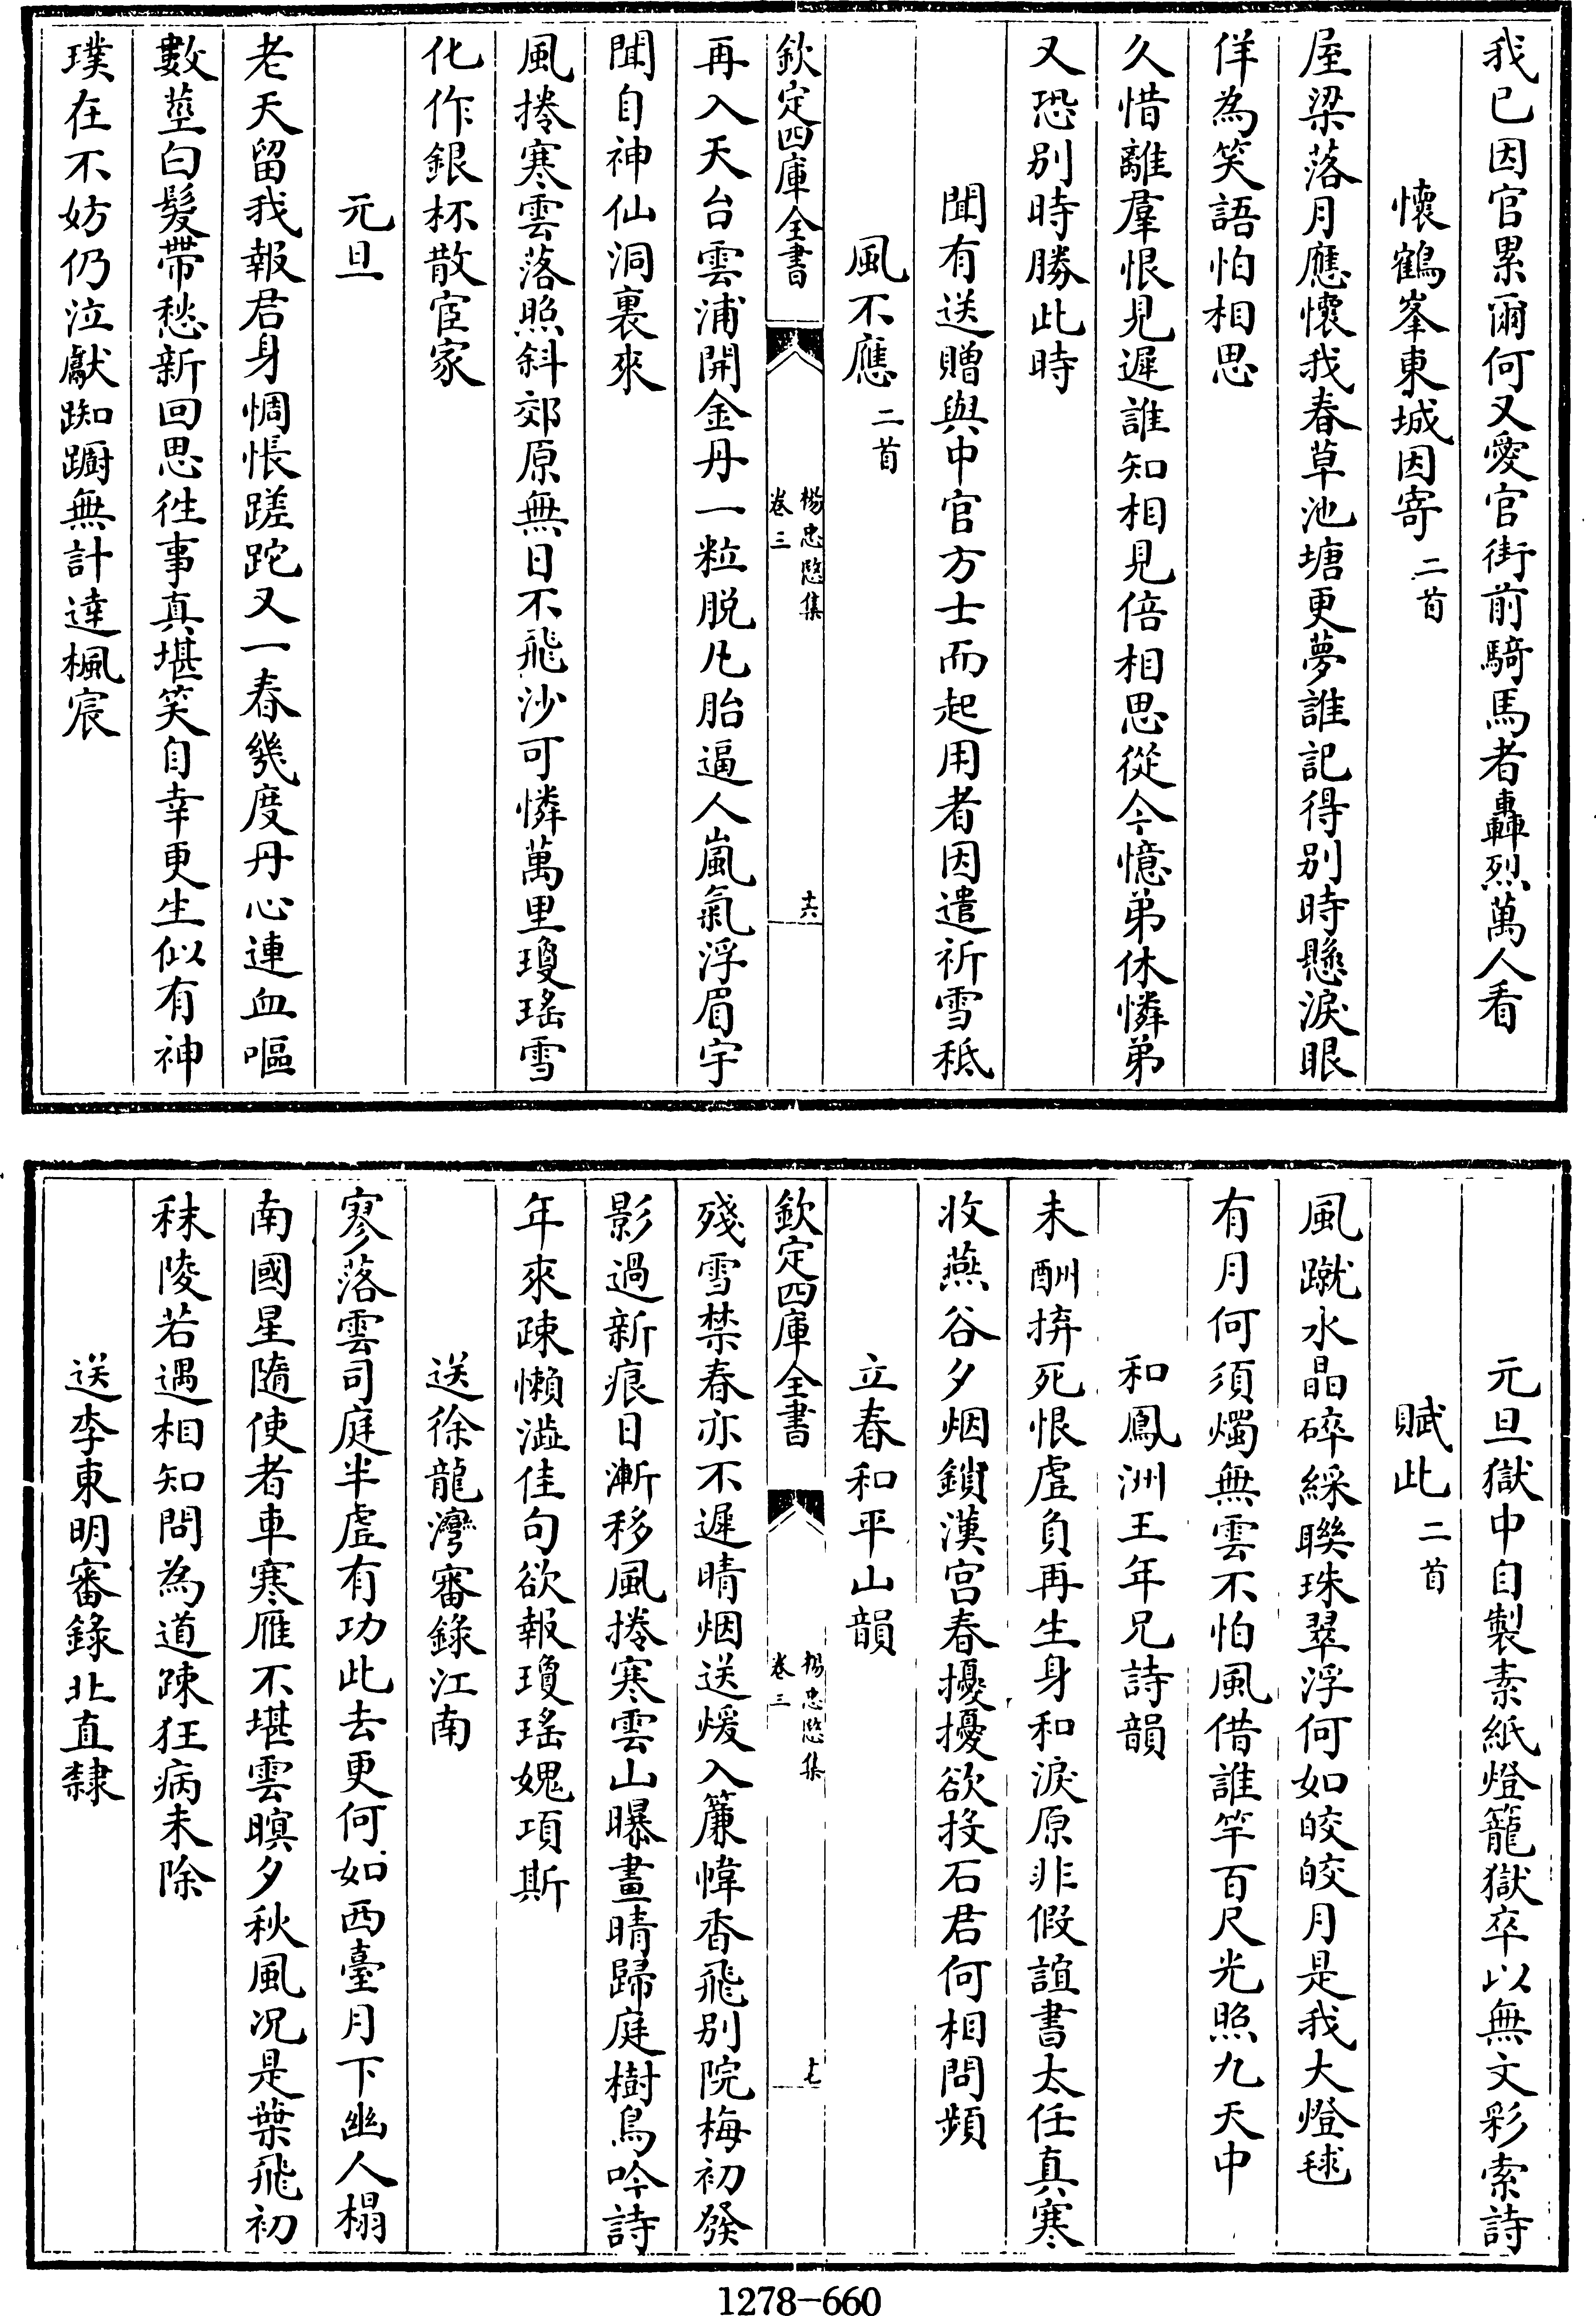 我已因官累爾何又愛官街前騎馬者轟烈萬人看
懷鶴峯東城因寄二首
屋梁落月應懷我春草池塘更夢誰記得别時懸淚眼
佯為笑語怕相思
久惜離羣恨見遲誰知相見倍相思從今憶弟休憐弟
又恐别時勝此時
聞有送贈與中官方士而起用者因遣祈雪秪
風不應二首
欽定四庫全書
楊忠愍集
卷三
十六
再入天台雲浦開金丹一粒脱凡胎逼人嵐氣浮眉宇
聞自神仙洞裏來
風捲寒雲落照斜郊原無日不飛沙可憐萬里瓊瑤雪
化作銀杯散宦家
元旦
老天留我報君身惆悵蹉跎又一春幾度丹心連血嘔
數莖白髮帶愁新回思徃事真堪笑自幸更生似有神
璞在不妨仍泣獻踟蹰無計達楓宸
元旦獄中自製素紙燈籠獄卒以無文彩索詩
賦此二首
風蹴水晶碎綵聯珠翠浮何如皎皎月是我大燈毬
有月何須燭無雲不怕風借誰竿百尺光照九天中
和鳳洲王年兄詩韻
未酬拚死恨虛負再生身和淚原非假誼書太任真寒
收燕谷夕烟鎖漢宫春擾擾欲投石君何相問頻
立春和平山韻
欽定四庫全書
楊忠愍集
卷三
十七
殘雪禁春亦不遲晴烟送煖入簾幃香飛别院梅初發
影過新痕日漸移風捲寒雲山曝畫晴歸庭樹鳥吟詩
年來踈懶澁佳句欲報瓊瑤媿項斯
送徐龍灣審録江南
寥落雲司庭半虛有功此去更何如西臺月下幽人榻
南國星隨使者車寒雁不堪雲暝夕秋風况是葉飛初
秣陵若遇相知問為道踈狂病未除
送李東明審録北直隸
1278-660